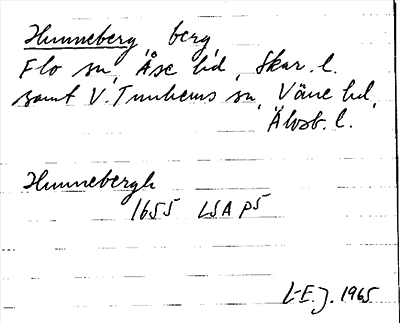 Hunneberg, berg,
Flo sn, Åse hd, Skar. l.
samt V. Tunhems sn, Väne hd,
Älvsb. l.
Hunnebergh
1655 LSA P5
L-E. J. 1965